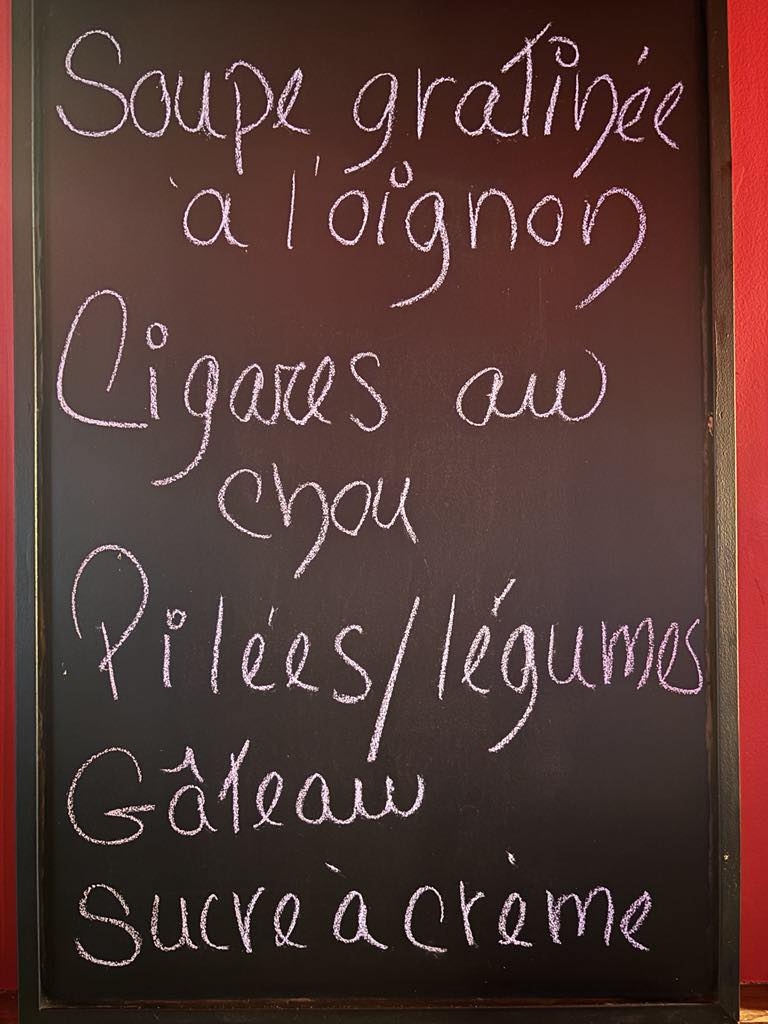 Soupe gratinée
à l'oignon
Cigares au
chou
Pilées/légumes
Gâteau
Sucre à crème